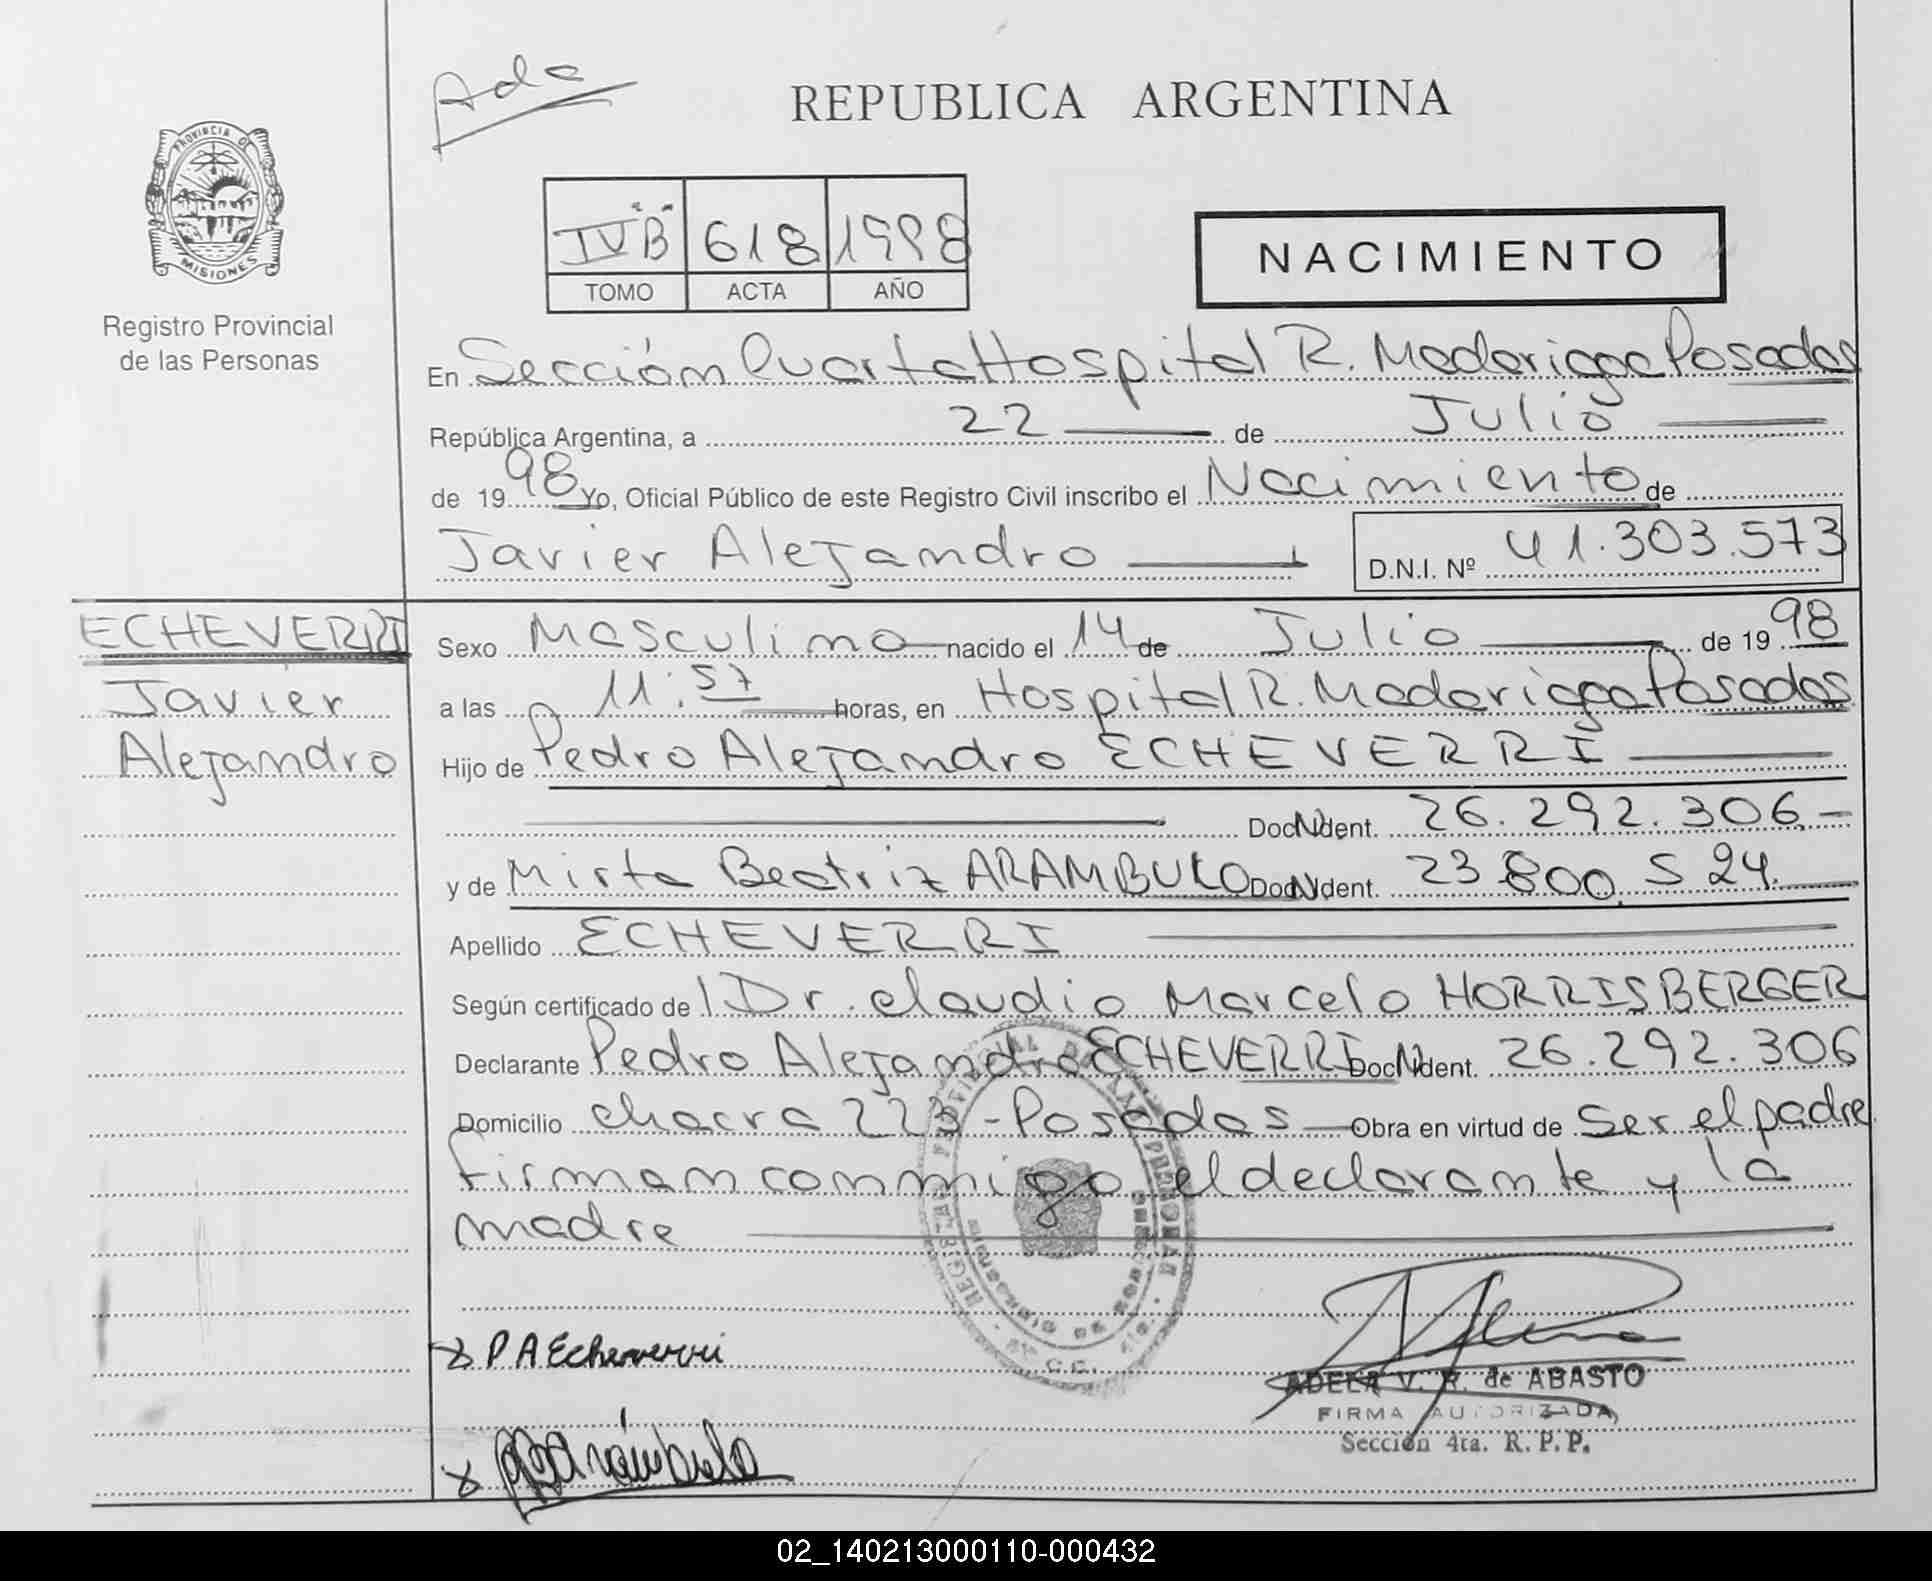 Ada
REPUBLICA ARGENTINA
PROVINCIA D
MISIONES
Registro Provincial
de las Personas
IV "B" 618 1998
TOMO ACTA AÑO
NACIMIENTO
En Sección Cuarta Hospital R. Madariaga Posadas
República Argentina, a 22 de Julio
de 1998 Yo, Oficial Público de este Registro Civil inscribo el Nacimiento de
Javier Alejandro D.N.I. Nº 41.303.573
ECHEVERRI
Javier
Alejandro
Sexo Masculino nacido el 14 de Julio de 1998
a las 11:57 horas, en Hospital R. Madariaga Posadas
Hijo de Pedro Alejandro ECHEVERRI
Doc. Ident. 26.292.306.-
y de Mirta Beatriz ARAMBULO Doc. Ident. 23.800.524.
Apellido ECHEVERRI
Según certificado del Dr. Claudio Marcelo HORRISBERGER
Declarante Pedro Alejandro ECHEVERRI Doc. Ident. 26.292.306
Domicilio chacra 223 - Posadas Obra en virtud de Ser el padre.
firman conmigo el declarante y la
madre
x P A Echeverri
ADELA V. R. de ABASTO
FIRMA AUTORIZADA
Sección 4ta. R. P. P.
x Arámbulo
02_140213000110-000432